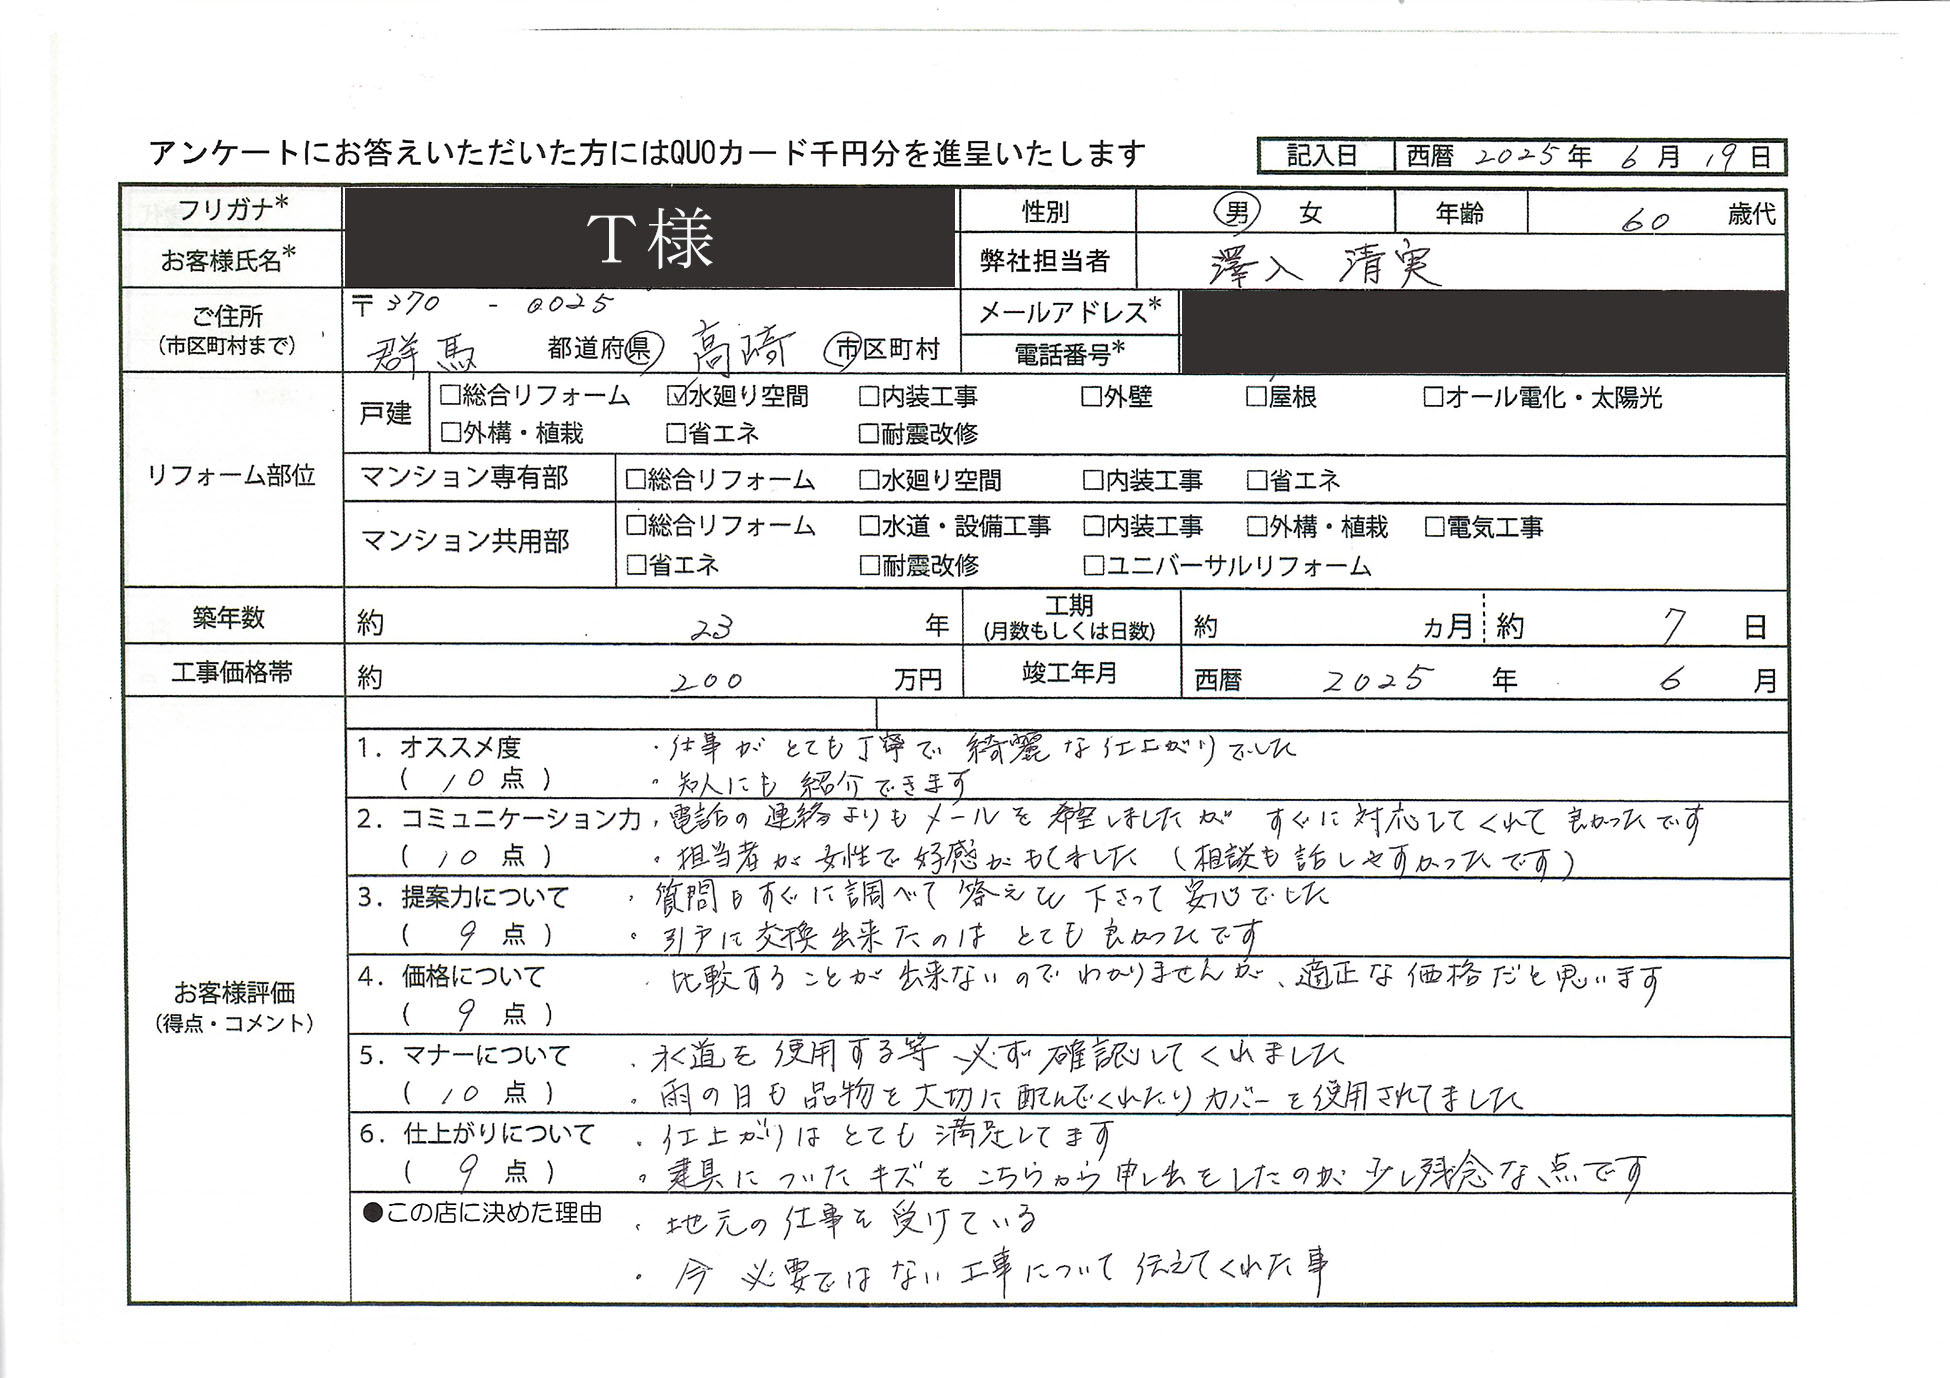 アンケートにお答えいただいた方にはQUOカード千円分を進呈いたします
記入日 西暦 2025 年 6 月 19 日
フリガナ* T様 性別 男 女 年齢 60 歳代
お客様氏名* 弊社担当者 澤入 清実
ご住所 (市区町村まで) 〒370 - 0025 メールアドレス*
群馬 都道府県 高崎 市区町村 電話番号*
リフォーム部位
戸建 □総合リフォーム ☑水廻り空間 □内装工事 □外壁 □屋根 □オール電化・太陽光
□外構・植栽 □省エネ □耐震改修
マンション専有部 □総合リフォーム □水廻り空間 □内装工事 □省エネ
マンション共用部 □総合リフォーム □水道・設備工事 □内装工事 □外構・植栽 □電気工事
□省エネ □耐震改修 □ユニバーサルリフォーム
築年数 約 23 年 工期 (月数もしくは日数) 約 ヵ月 約 7 日
工事価格帯 約 200 万円 竣工年月 西暦 2025 年 6 月
お客様評価
(得点・コメント)
1. オススメ度 ・仕事がとても丁寧で 綺麗な仕上がりでした
( 10 点 ) ・知人にも紹介できます
2. コミュニケーション力 ・電話の連絡よりもメールを希望しましたが すぐに対応してくれて良かったです
( 10 点 ) ・担当者が女性で好感がもてました (相談も話しやすかったです)
3. 提案力について ・質問もすぐに調べて答えて下さって安心でした
( 9 点 ) ・引戸に交換出来たのはとても良かったです
4. 価格について ・比較することが出来ないのでわかりませんが、適正な価格だと思います
( 9 点 )
5. マナーについて ・水道を使用する等 必ず確認してくれました
( 10 点 ) ・雨の日も品物を大切に配んでくれたりカバーを使用されてました
6. 仕上がりについて ・仕上がりはとても満足してます
( 9 点 ) ・建具についたキズをこちらから申し出をしたのが少し残念な点です
●この店に決めた理由 ・地元の仕事を受けている
・今必要ではない工事について伝えてくれた事